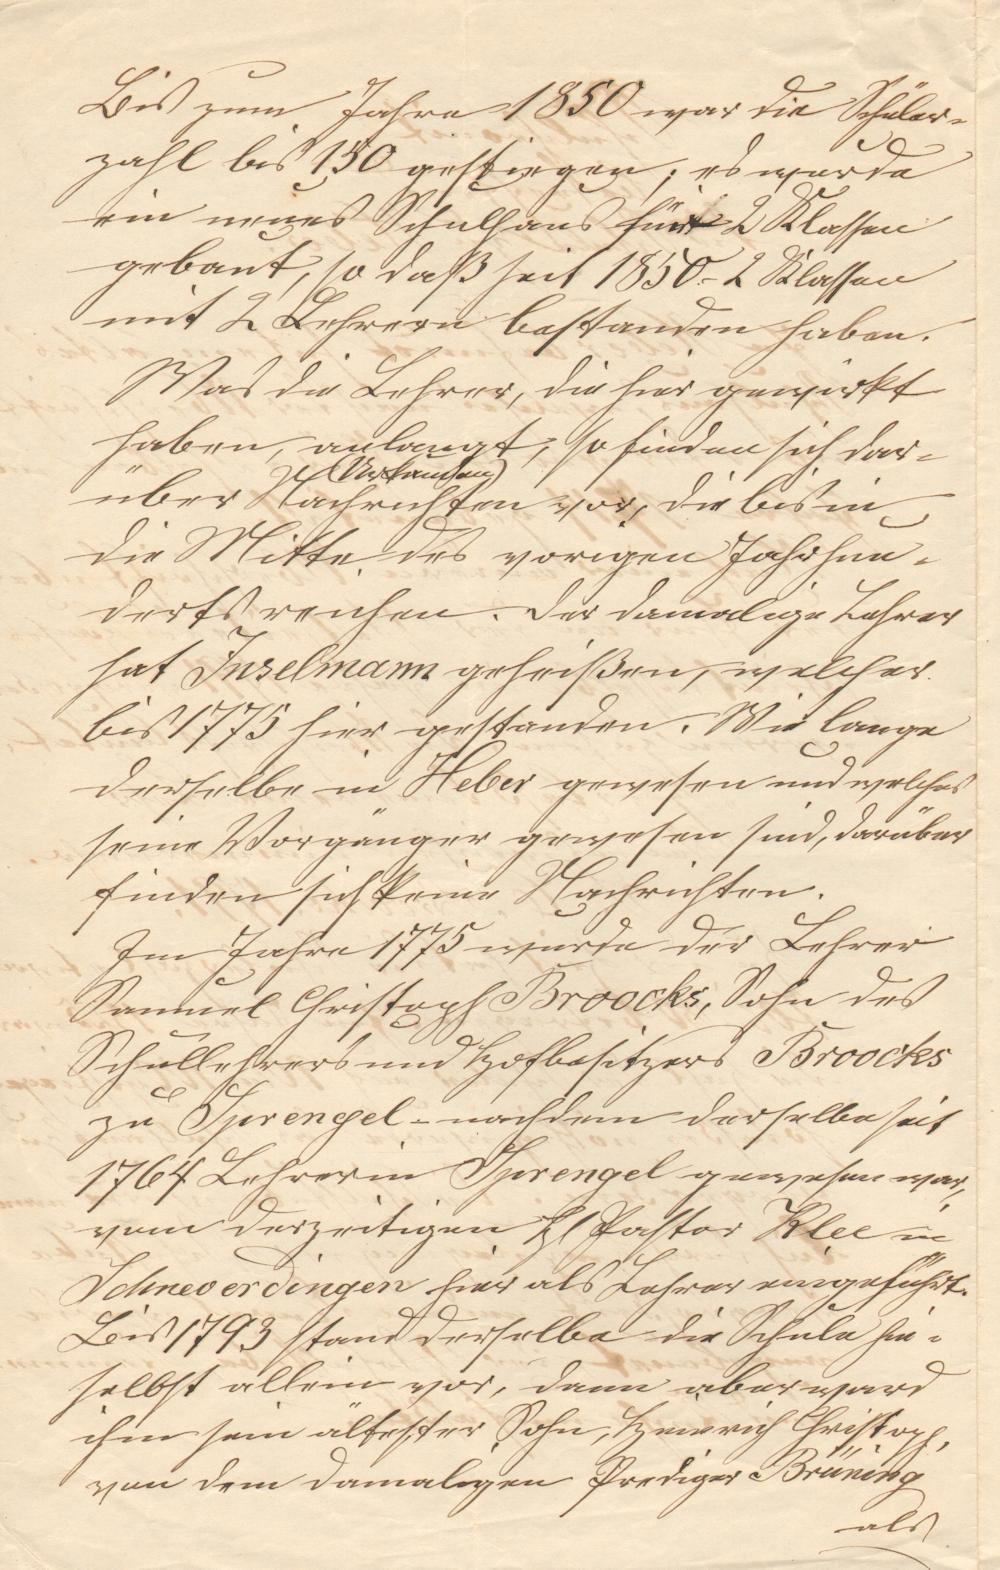 Bis zum Jahre 1850 war die Schüler-
zahl bis 130 gestiegen; es wurde
ein neues Schulhaus für 2 Klassen
gebaut, so daß seit 1850 - 2 Klassen
mit 2 Lehrern bestanden haben.
Was die Lehrer, die hier gewirkt
haben, anlangt, so finden sich dar-
(Urkunden)
über Nachrichten vor, die bis in
die Mitte des vorigen Jahrhun-
derts reichen. Der damalige Lehrer
hat Inselmann geheißen, welcher
bis 1775 hier gestanden. Wie lange
derselbe in Heber gewesen und welches
seine Vorgänger gewesen sind, darüber
finden sich keine Nachrichten.
Im Jahre 1775 wurde der Lehrer
Samuel Christoph Broocks, Sohn des
Schullehrers und Hofbesitzers Broocks
zu Sprengel - nachdem derselbe seit
1764 Lehrer in Sprengel gewesen war,
vom derzeitigen H Pastor Klee in
Schneverdingen hier als Lehrer eingeführt.
Bis 1793 stand derselbe die Schule hie-
selbst allein vor, dann aber ward
ihm sein ältester Sohn, Heinrich Christoph,
von dem damaligen Prediger Brüning
als